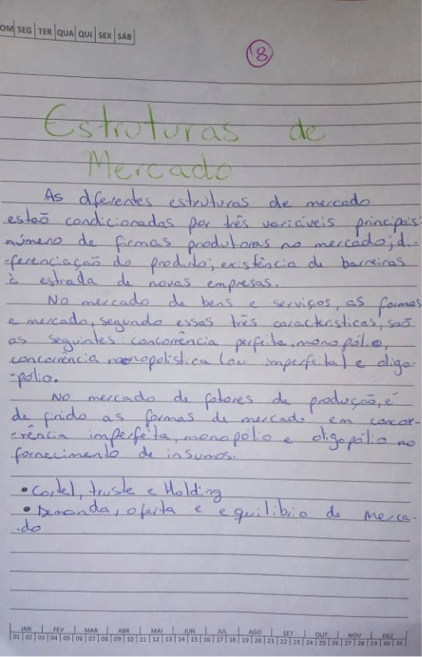 DOM SEG TER QUA QUI SEX SÁB
8
Estruturas de
Mercado
As diferentes estruturas de mercado
estão condicionadas por três variáveis principais:
número de firmas produtoras no mercado; di-
ferenciação do produto; existência de barreiras
à estrada de novas empresas.
No mercado de bens e serviços, as formas
e mercado, segundo essas três características, são
as seguintes concorrência perfeita, monopólio,
concorrência monopolística (ou imperfeita) e oligo-
-pólio.
No mercado de fatores de produção, é
de finido as formas de mercado em concor-
-rência imperfeita, monopólio e oligopólio no
fornecimento de insumos.
• Cartel, truste e Holding
• Demanda, oferta e equilibrio de merca-
-do
JAN FEV MAR ABR MAI JUN JUL AGO SET OUT NOV DEZ
01 02 03 04 05 06 07 08 09 10 11 12 13 14 15 16 17 18 19 20 21 22 23 24 25 26 27 28 29 30 31